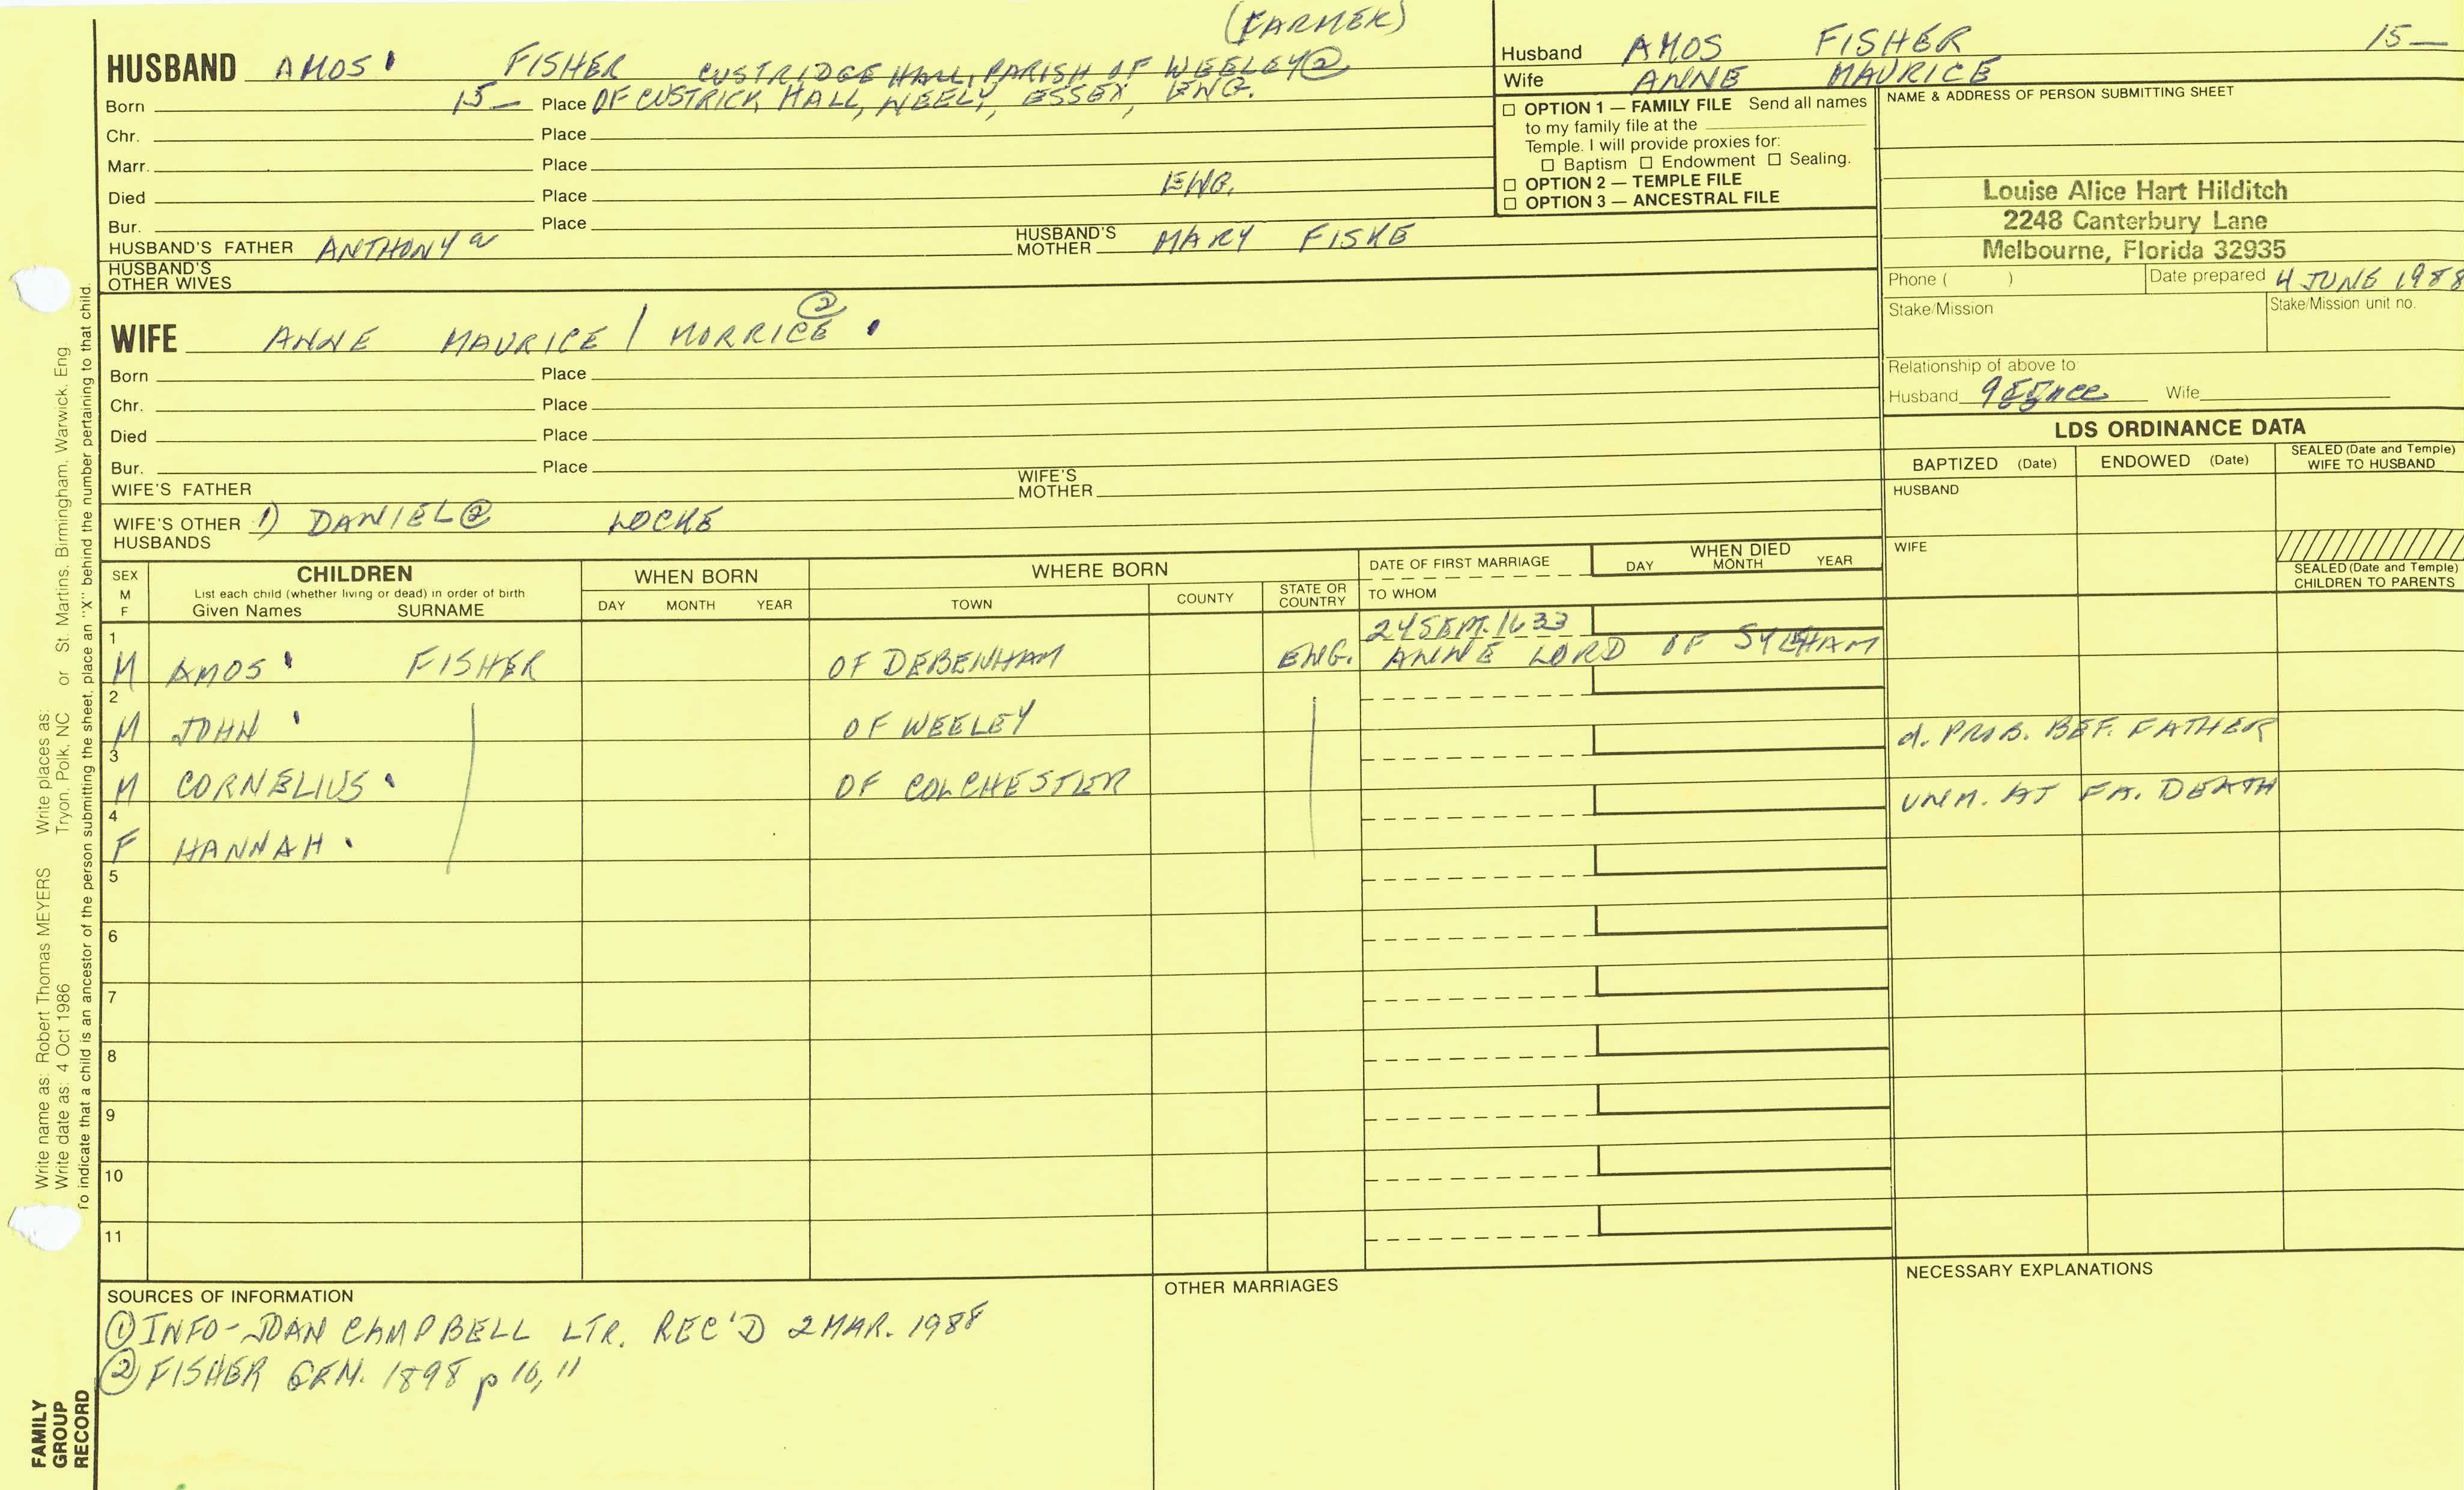 (FARMER)
HUSBAND AMOS FISHER CUSTRIDGE HALL, PARISH OF WEELEY②
Born 15— Place OF CUSTRICK HALL, WEELY, ESSEX, ENG.
Chr. Place
Marr. Place
Died Place ENG.
Bur. Place
HUSBAND'S FATHER ANTHONY HUSBAND'S MOTHER MARY FISKE
HUSBAND'S OTHER WIVES
WIFE ANNE MAURICE / MORRICE ②
Born Place
Chr. Place
Died Place
Bur. Place
WIFE'S FATHER WIFE'S MOTHER
WIFE'S OTHER HUSBANDS 1) DANIEL② LOCKE
Husband AMOS FISHER 15—
Wife ANNE MAURICE
☐ OPTION 1 — FAMILY FILE Send all names
to my family file at the
Temple. I will provide proxies for:
☐ Baptism ☐ Endowment ☐ Sealing.
☐ OPTION 2 — TEMPLE FILE
☐ OPTION 3 — ANCESTRAL FILE
NAME & ADDRESS OF PERSON SUBMITTING SHEET
Louise Alice Hart Hilditch
2248 Canterbury Lane
Melbourne, Florida 32935
Phone ( ) Date prepared 4 JUNE 1988
Stake/Mission Stake/Mission unit no.
Relationship of above to
Husband Wife
LDS ORDINANCE DATA
BAPTIZED (Date) ENDOWED (Date) SEALED (Date and Temple) WIFE TO HUSBAND
HUSBAND
WIFE
SEALED (Date and Temple)
CHILDREN TO PARENTS
SEX M F CHILDREN WHEN BORN WHERE BORN DATE OF FIRST MARRIAGE WHEN DIED
List each child (whether living or dead) in order of birth
Given Names SURNAME DAY MONTH YEAR TOWN COUNTY STATE OR COUNTRY TO WHOM DAY MONTH YEAR
1 24 SEPT. 1633
M AMOS FISHER OF DEBENHAM ENG. ANNE LORD OF SYLEHAM
2
M JOHN OF WEELEY d. PROB. BEF. FATHER
3
M CORNELIUS OF COLCHESTER UNM. AT FA. DEATH
4
F HANNAH
5
6
7
8
9
10
11
SOURCES OF INFORMATION
① INFO - JOAN CAMPBELL LTR. REC'D 2 MAR. 1988
② FISHER GEN. 1898 p 10, 11
OTHER MARRIAGES
NECESSARY EXPLANATIONS
Write name as: Robert Thomas MEYERS Write places as: Tryon, Polk, NC or St. Martins, Birmingham, Warwick, Eng
Write date as: 4 Oct 1986
To indicate that a child is an ancestor of the person submitting the sheet, place an "X" behind the number pertaining to that child.
FAMILY
GROUP
RECORD